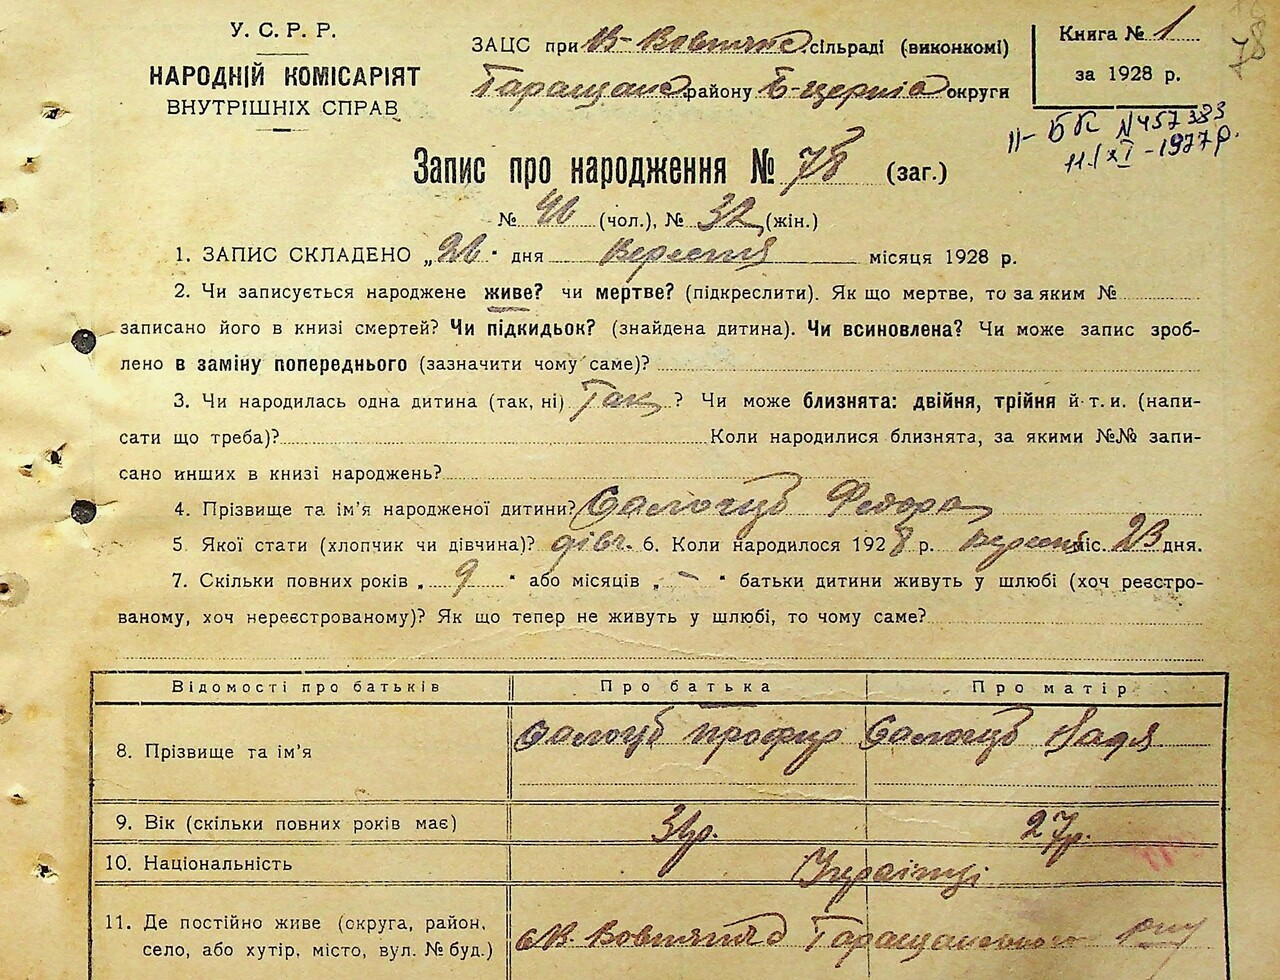 У. С. Р. Р.
НАРОДНІЙ КОМІСАРІЯТ
ВНУТРІШНІХ СПРАВ
ЗАЦС при В-Вовнянс сільраді (виконкомі)
Таращанс району Б-церків округи
Книга № 1
за 1928 р.
78
11- БК №457383
11/XI-1977р.
Запис про народження № 78 (заг.)
№ 46 (чол.), № 32 (жін.)
1. ЗАПИС СКЛАДЕНО „26" дня Вересня місяця 1928 р.
2. Чи записується народжене живе? чи мертве? (підкреслити). Як що мертве, то за яким №
записано його в книзі смертей? Чи підкидьок? (знайдена дитина). Чи всиновлена? Чи може запис зроб-
лено в заміну попереднього (зазначити чому саме)?
3. Чи народилась одна дитина (так, ні) Так ? Чи може близнята: двійня, трійня й т. и. (напи-
сати що треба)? Коли народилися близнята, за якими №№ запи-
сано инших в книзі народжень?
4. Прізвище та ім'я народженої дитини? Салогуб Федора
5. Якої стати (хлопчик чи дівчина)? дівч. 6. Коли народилося 1928 р. Вересня міс. 23 дня.
7. Скільки повних років „ 9 " або місяців „ - " батьки дитини живуть у шлюбі (хоч реєстро-
ваному, хоч нереєстрованому)? Як що тепер не живуть у шлюбі, то чому саме?
Відомості про батьків Про батька Про матір
8. Прізвище та ім'я Салогуб Профир Салогуб Надя
9. Вік (скільки повних років має) 36р. 27р.
10. Національність Українці
11. Де постійно живе (округа, район,
село, або хутір, місто, вул. № буд.) с В. Вовнянка Таращанського рну